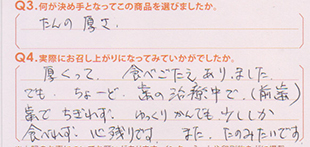 Q3.何が決め手となってこの商品を選びましたか。
たんの厚さ.
Q4.実際にお召し上がりになってみていかがでしたか。
厚くって、食べごたえありました.
でも、ちょーど、歯の治療中で、(前歯)
歯でちぎれず. ゆっくりかんでも少ししか
食べれず. 心残りです. また、たのみたいです